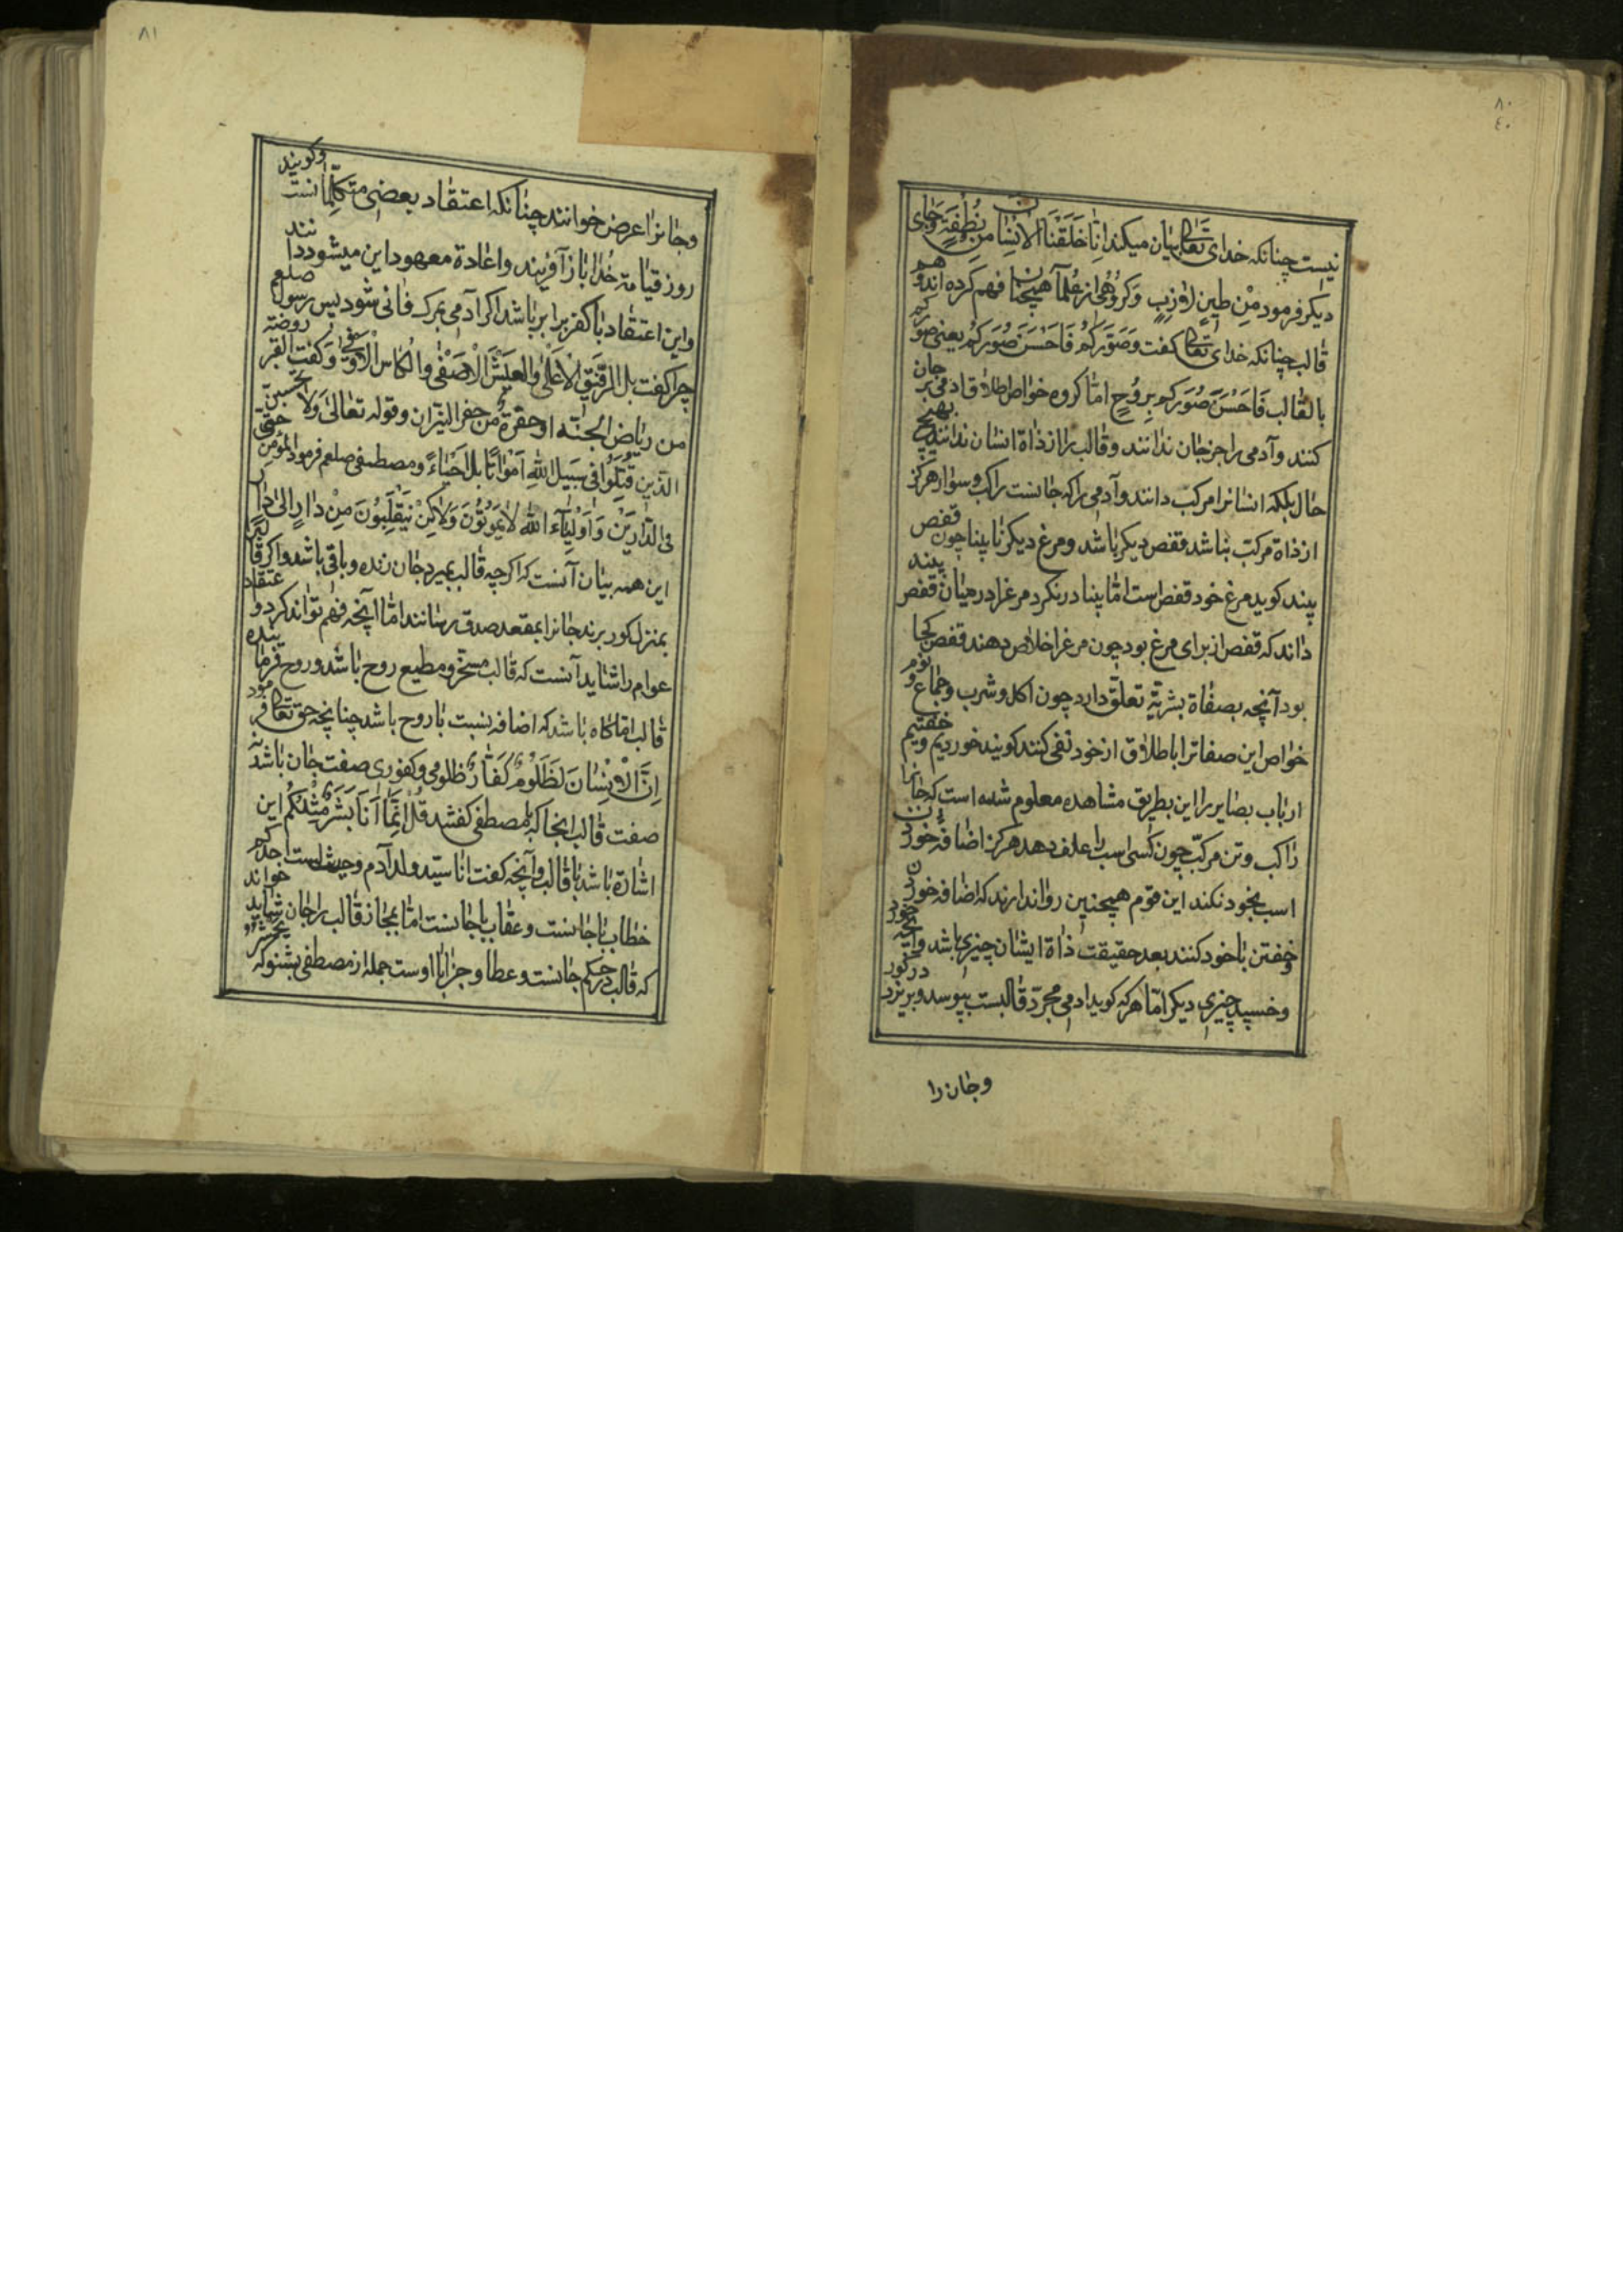 ٨٠
٤٠
نیست چنانکه خدای تعالی بیان میکند اِنّا خَلَقْنَا الاِنْسانَ مِنْ نُطْفَةٍ وجای
دیکر فرمود مِنْ طینٍ لازِبٍ وکروهی از عُلمآ همچنان فهم کرده اند وهم
قالب چنانکه خدای تعالی کفت وَصَوَّرَکُمْ فَاَحْسَنَ صُوَرَکُمْ یعنی صورکم
بالقالب فَاَحْسَنَ صُوَرَکم بِرُوحٍ امّا کروه خواص اطلاق آدمی بر جان
کنند وآدمی را جز جان ندانند وقالب را از ذاة انسان ندانند بهیچ
حال بلکه انسانرا مرکب دانند وآدمی را که جانست راکب وسوار هرکز
از ذاة مرکب نباشد قفص دیکر باشد ومرغ دیکر نابینا چون قفص
بیند کوید مرغ خود قفص است امّا بینا درنکرد مرغرا در میان قفص بیند
داند که قفص از برای مرغ بود چون مرغرا خلاص دهند قفص کجا
بود آنچه بصفاة بشریّة تعلّق دارد چون اکل وشرب وجماع و نوم
خواص این صفاترا باطلاق از خود نفی کنند کویند خوردیم و خفتیم
ارباب بصایر را این بطریق مشاهده معلوم شده است که جانها
راکب وتن مرکبّ چون کسی اسب را علف دهد هرکز اضافه خوردن
اسب بخود نکند این قوم همچنین روا ندارند که اضافه خوردن
وخفتن با خود کنند بعد حقیقت ذاة ایشان چیزی باشد وآنچه خورد
وخسپد چیزی دیکر امّا هرکه کوید آدمی مجرّد قالبست بپوسد وبریزد در کور
وجان را
٨١
وجانرا عرض خوانند چنانکه اعتقاد بعضی متکلّمانست وکویند
روز قیامة خُدا باز آفریند واعادة معهود این میشود دانند
واین اعتقاد با کفر برابر باشد اکر آدمی بمرک فانی شود پس رسول صلعم
چرا کفت بل الرفیق الاعلی والعیش الاصفی والکاس الاوفی وکفت القبر روضة
من ریاض الجنّة او حفرة من حفر النیران وقوله تعالی ولا تحسبنّ
الذین قتلوا فی سبیل الله امواتًا بل احیاءً ومصطفی صلعم فرمود المؤمن حیّ
فی الدّارین وَاَولیآء الله لا یموتون ولاکن ینقلبون مِنْ دارٍ الی دار
این همه بیان آنست که اکرچه قالب بمیرد جان زنده وباقی باشد واکر قالب
بمنزل کور برند جانرا بمقعد صدق رسانند امّا آنچه فهم تواند کرد واعتقاد
عوام را شاید آنست که قالب مسخّر ومطیع روح باشد وروح فرماینده
قالب امّا کاه باشد که اضافه نسبت با روح باشد چنانچه حق تعالی فرمود
اِنَّ الاِنْسانَ لَظَلُومٌ کَفّارٌ ظلومی وکفوری صفت جان باشد نه
صفت قالب آنجا که با مصطفی کفتند قُلْ اِنَّما اَنَا بَشَرٌ مِثْلُکُمْ این
اشارة باشد با قالب وآنچه کفت انا سیّد ولد آدم
خطاب با جانست وعقاب با جانست امّا بمجاز قالب را جان شاید خواند
که قالب در حکم جانست وعطا وجزا با اوست جمله از مصطفی بشنو که